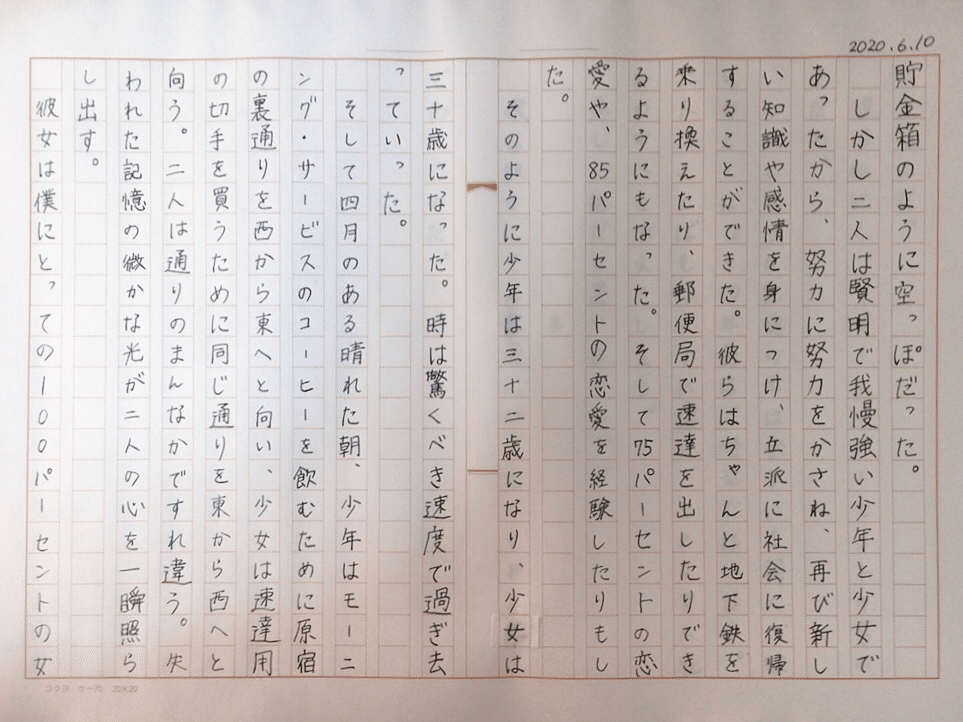 2020.6.10
貯金箱のように空っぽだった。
しかし二人は賢明で我慢強い少年と少女で
あったから、努力に努力をかさね、再び新し
い知識や感情を身につけ、立派に社会に復帰
することができた。彼らはちゃんと地下鉄を
乗り換えたり、郵便局で速達を出したりでき
るようにもなった。そして75パーセントの恋
愛や、85パーセントの恋愛を経験したりもし
た。
そのように少年は三十二歳になり、少女は
三十歳になった。時は驚くべき速度で過ぎ去
っていった。
そして四月のある晴れた朝、少年はモーニ
ング・サービスのコーヒーを飲むために原宿
の裏通りを西から東へと向い、少女は速達用
の切手を買うために同じ通りを東から西へと
向う。二人は通りのまんなかですれ違う。失
われた記憶の微かな光が二人の心を一瞬照ら
し出す。
彼女は僕にとっての100パーセントの女
コクヨ ケー70 20×20